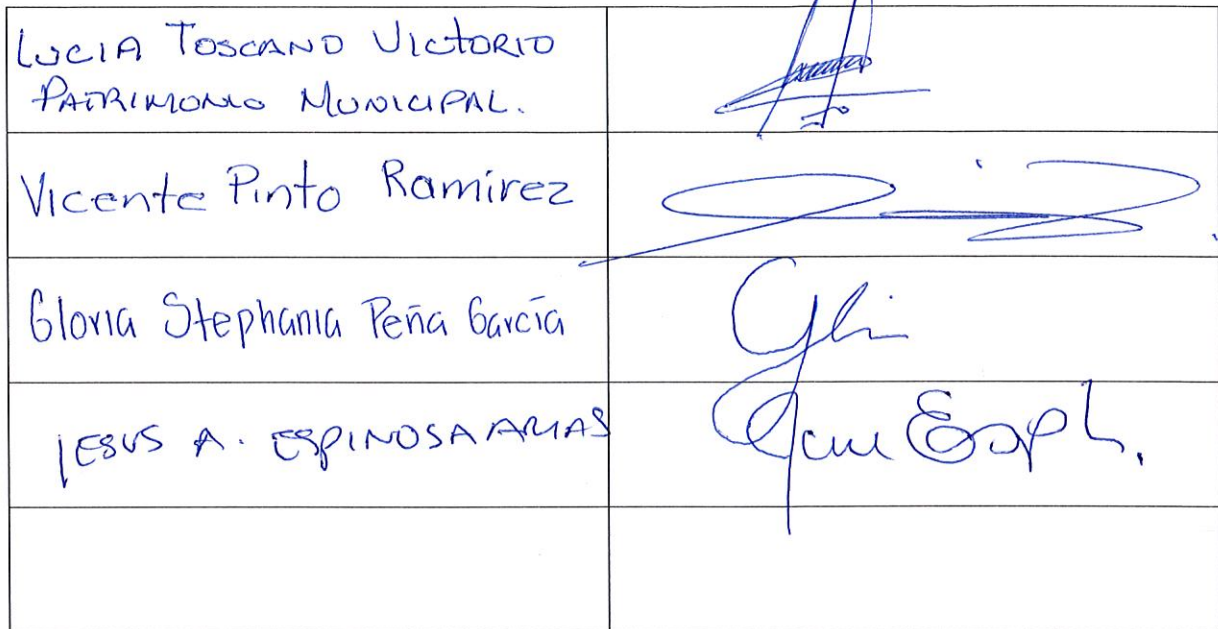 LUCIA TOSCANO VICTORIO
PATRIMONIO MUNICIPAL.
Vicente Pinto Ramírez
Gloria Stephania Peña García
JESUS A. ESPINOSA ARIAS